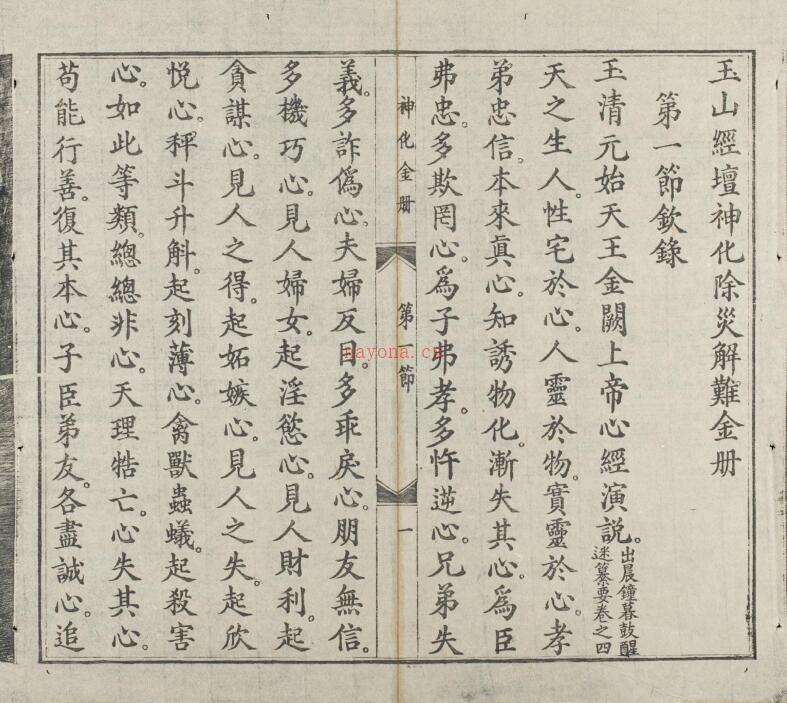 玉山經壇神化除災解難金册
第一節欽錄
玉清元始天王金闕上帝心經演說。出晨鐘暮鼓醒迷纂要卷之四
天之生人。性宅於心。人靈於物。實靈於心。孝
弟忠信。本來眞心。知誘物化。漸失其心。爲臣
弗忠。多欺罔心。爲子弗孝。多忤逆心。兄弟失
神化金册 第一節 一
義。多詐僞心。夫婦反目。多乖戾心。朋友無信。
多機巧心。見人婦女。起淫慾心。見人財利。起
貪謀心。見人之得。起妬嫉心。見人之失。起欣
悅心。秤斗升斛。起刻薄心。禽獸蟲蟻。起殺害
心。如此等類。總總非心。天理牿亡。心失其心。
苟能行善。復其本心。子臣弟友。各盡誠心。追
nayona.cn